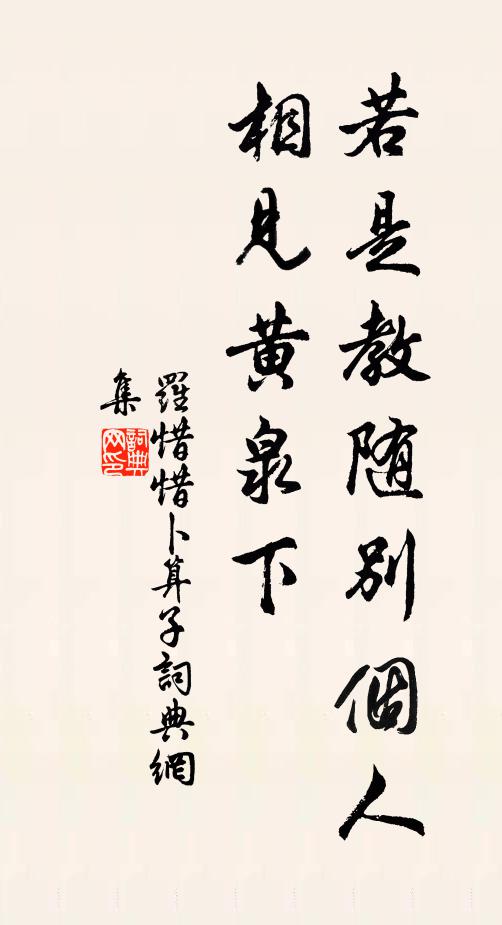 若是教随别個人
相見黄泉下
羅惜惜卜算子詞典網
集
詞典
网印